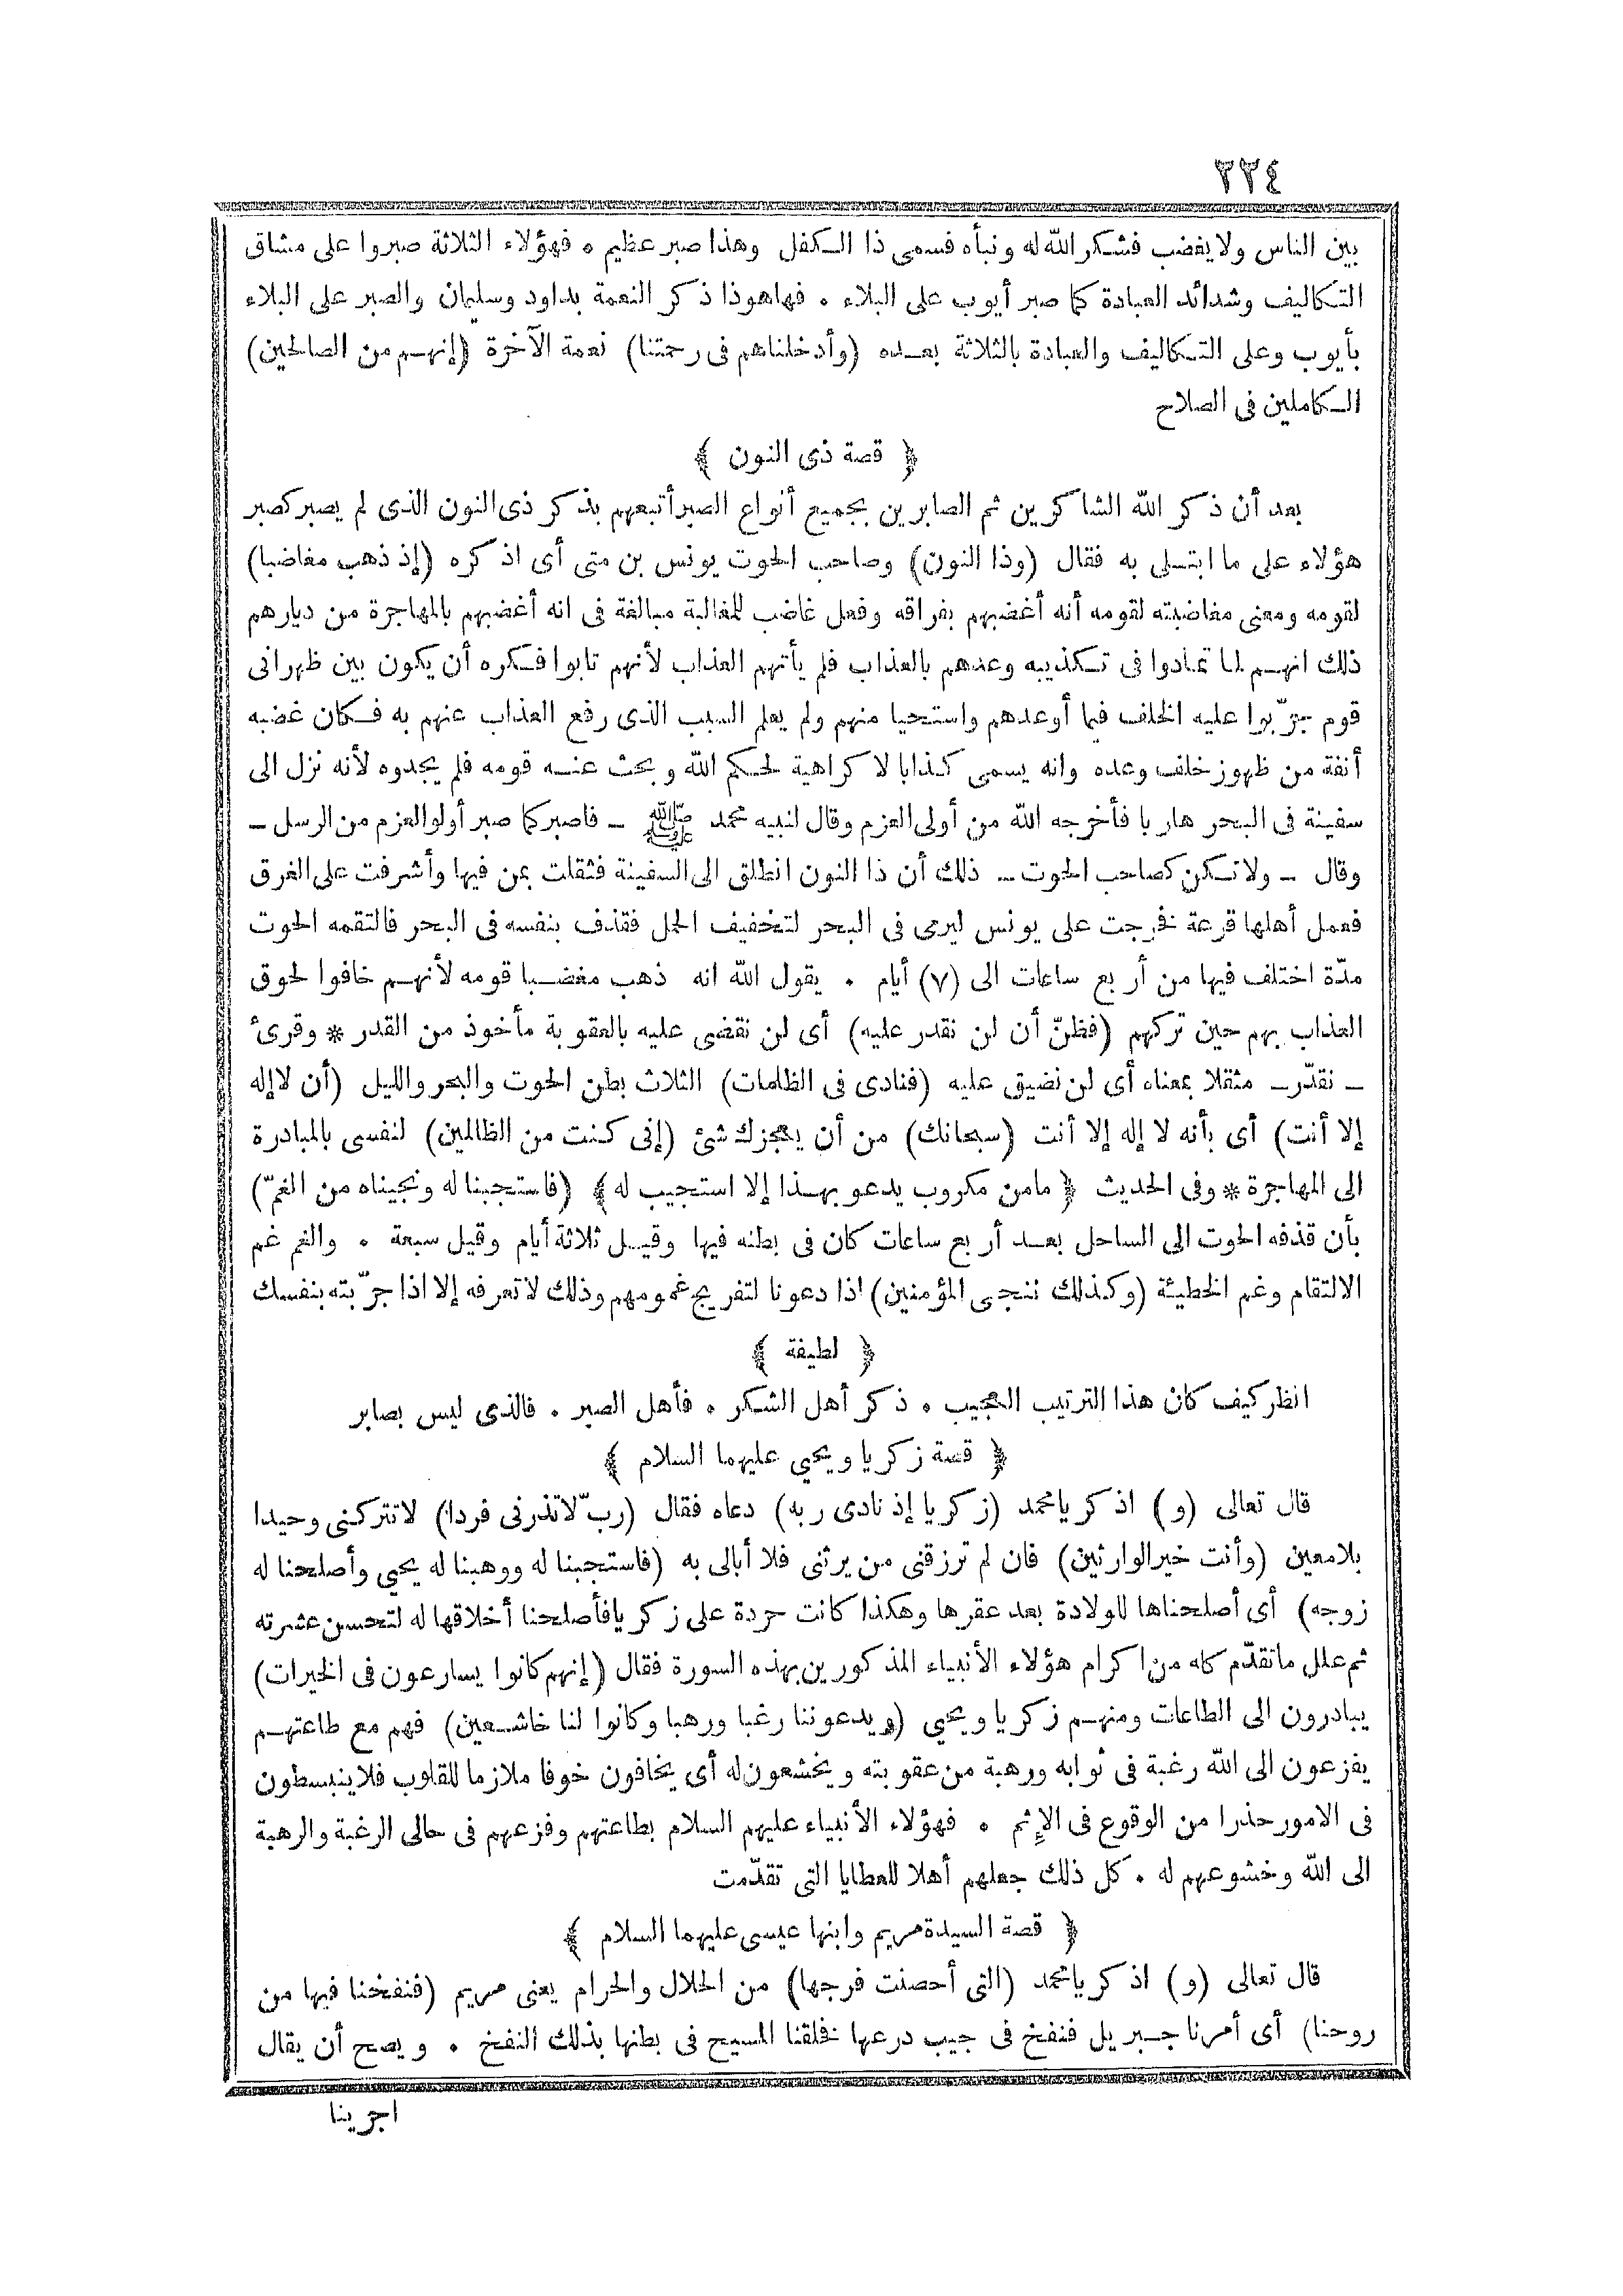 ٢٢٤
بين الناس ولا يغضب فشكر الله له ونبأه فسمى ذا الكفل وهذا صبر عظيم ۰ فهؤلاء الثلاثة صبروا على مشاق
التكاليف وشدائد العبادة كما صبر أيوب على البلاء ۰ فها هو ذا ذكر النعمة بداود وسليمان والصبر على البلاء
بأيوب وعلى التكاليف والعبادة بالثلاثة بعده (وأدخلناهم فى رحمتنا) نعمة الآخرة (إنهم من الصالحين)
الكاملين فى الصلاح
﴿ قصة ذى النون ﴾
بعد أن ذكر الله الشاكرين ثم الصابرين بجميع أنواع الصبر أتبعهم بذكر ذى النون الذى لم يصبر كصبر
هؤلاء على ما ابتلى به فقال (وذا النون) وصاحب الحوت يونس بن متى أى اذكره (إذ ذهب مغاضبا)
لقومه ومعنى مغاضبته لقومه أنه أغضبهم بفراقه وفعل غاضب للمغالبة مبالغة فى انه أغضبهم بالمهاجرة من ديارهم
ذلك انهم لما تمادوا فى تكذيبه وعدهم بالعذاب فلم يأتهم العذاب لأنهم تابوا فكره أن يكون بين ظهرانى
قوم جرّبوا عليه الخلف فيما أوعدهم واستحيا منهم ولم يعلم السبب الذى رفع العذاب عنهم به فكان غضبه
أنفة من ظهور خلف وعده وانه يسمى كذابا لا كراهية لحكم الله وبحث عنه قومه فلم يجدوه لأنه نزل الى
سفينة فى البحر هاربا فأخرجه الله من أولى العزم وقال لنبيه محمد ﷺ ــ فاصبر كما صبر أولوالعزم من الرسل ــ
وقال ــ ولا تكن كصاحب الحوت ــ ذلك أن ذا النون انطلق الى السفينة فثقلت بمن فيها وأشرفت على الغرق
فعمل أهلها قرعة فخرجت على يونس ليرمى فى البحر لتخفيف الحمل فقذف بنفسه فى البحر فالتقمه الحوت
مدّة اختلف فيها من أربع ساعات الى (٧) أيام ۰ يقول الله انه ذهب مغضبا قومه لأنهم خافوا لحوق
العذاب بهم حين تركهم (فظنّ أن لن نقدر عليه) أى لن نقضى عليه بالعقوبة مأخوذ من القدر * وقرئ
ــ نقدّر ــ مثقلا بمعناه أى لن نضيق عليه (فنادى فى الظلمات) الثلاث بطن الحوت والبحر والليل (أن لاإله
إلا أنت) أى بأنه لا إله إلا أنت (سبحانك) من أن يعجزك شئ (إنى كنت من الظالمين) لنفسى بالمبادرة
الى المهاجرة * وفى الحديث ﴿ مامن مكروب يدعو بهذا إلا استجيب له ﴾ (فاستجبنا له ونجيناه من الغمّ)
بأن قذفه الحوت الى الساحل بعد أربع ساعات كان فى بطنه فيها وقيل ثلاثة أيام وقيل سبعة ۰ والغم غم
الالتقام وغم الخطيئة (وكذلك ننجى المؤمنين) اذا دعونا لتفريج غمومهم وذلك لا تعرفه إلا اذا جرّبته بنفسك
﴿ لطيفة ﴾
انظر كيف كان هذا الترتيب العجيب ۰ ذكر أهل الشكر ۰ فأهل الصبر ۰ فالذى ليس بصابر
﴿ قصة زكريا ويحيى عليهما السلام ﴾
قال تعالى (و) اذكر يامحمد (زكريا إذ نادى ربه) دعاه فقال (ربّ لاتذرنى فردا) لا تتركنى وحيدا
بلامعين (وأنت خير الوارثين) فان لم ترزقنى من يرثنى فلا أبالى به (فاستجبنا له ووهبنا له يحيى وأصلحنا له
زوجه) أى أصلحناها للولادة بعد عقرها وهكذا كانت حردة على زكريا فأصلحنا أخلاقها له لتحسن عشرته
ثم علل ماتقدّم كله من اكرام هؤلاء الأنبياء المذكورين بهذه السورة فقال (إنهم كانوا يسارعون فى الخيرات)
يبادرون الى الطاعات ومنهم زكريا ويحيى (ويدعوننا رغبا ورهبا وكانوا لنا خاشعين) فهم مع طاعتهم
يفزعون الى الله رغبة فى ثوابه ورهبة من عقوبته ويخشعون له أى يخافون خوفا ملازما للقلوب فلاينبسطون
فى الامور حذرا من الوقوع فى الإثم ۰ فهؤلاء الأنبياء عليهم السلام بطاعتهم وفزعهم فى حالى الرغبة والرهبة
الى الله وخشوعهم له ۰ كل ذلك جعلهم أهلا للعطايا التى تقدّمت
﴿ قصة السيدة مريم وابنها عيسى عليهما السلام ﴾
قال تعالى (و) اذكر يامحمد (التى أحصنت فرجها) من الحلال والحرام يعنى مريم (فنفخنا فيها من
روحنا) أى أمرنا جبريل فنفخ فى جيب درعها فخلقنا المسيح فى بطنها بذلك النفخ ۰ ويصح أن يقال
اجرينا